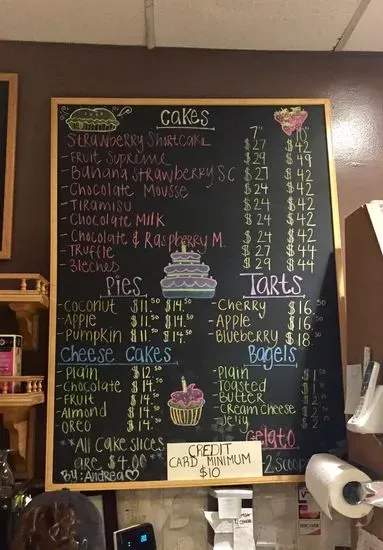 Cakes
7" 10"
Strawberry Shortcake $27 $42
- Fruit Supreme $29 $49
- Banana Strawberry SC $27 $42
- Chocolate Mousse $24 $42
- Tiramisu $24 $42
- Chocolate Milk $24 $42
- Chocolate & Raspberry M. $24 $42
- Truffle $27 $44
- 3leches $29 $44
Pies
- Coconut $11.50 $14.50
- Apple $11.50 $14.50
- Pumpkin $11.50 $14.50
Tarts
- Cherry $16.50
- Apple $16.50
- Blueberry $18.50
Cheese Cakes
- Plain $12.50
- Chocolate $14.
- Fruit $14.
- Almond $14.
- Oreo $14.
Bagels
- Plain $1
- Toasted $1
- Butter $2
- Cream Cheese $2
- Jelly $2
*All Cake slices
are $4.00*
By: Andrea
CREDIT
CARD MINIMUM
$10
Gelato
2 Scoop